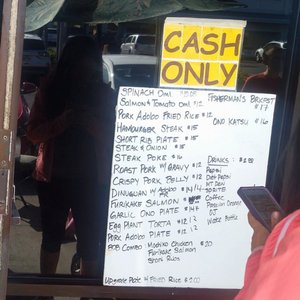 CASH
ONLY
SPINACH OML
SALMON & TOMATO OML $12
PORK ADOBO FRIED RICE $12
HAMBURGER STEAK $15
SHORT RIB PLATE $15
STEAK & ONION $15
STEAK POKE $16
ROAST PORK W/ GRAVY $12
CRISPY PORK BELLY
DINUGUAN W/ ADOBO
FURIKAKE SALMON
GARLIC ONO PLATE $14
EGG PLANT TORTA $12
PORK ADOBO PLATE $12
POB COMBO MOCHIKO CHICKEN $20
FURIKAKE SALMON
SHORT RIBS
UPGRADE PLATE W/ FRIED RICE $2.00
FISHERMAN'S BRKFST
$17
ONO KATSU $16
DRINKS:
PEPSI
DIET PEPSI
MT DEW
SPRITE
COFFEE
PASSION ORANGE
WATER BOTTLE